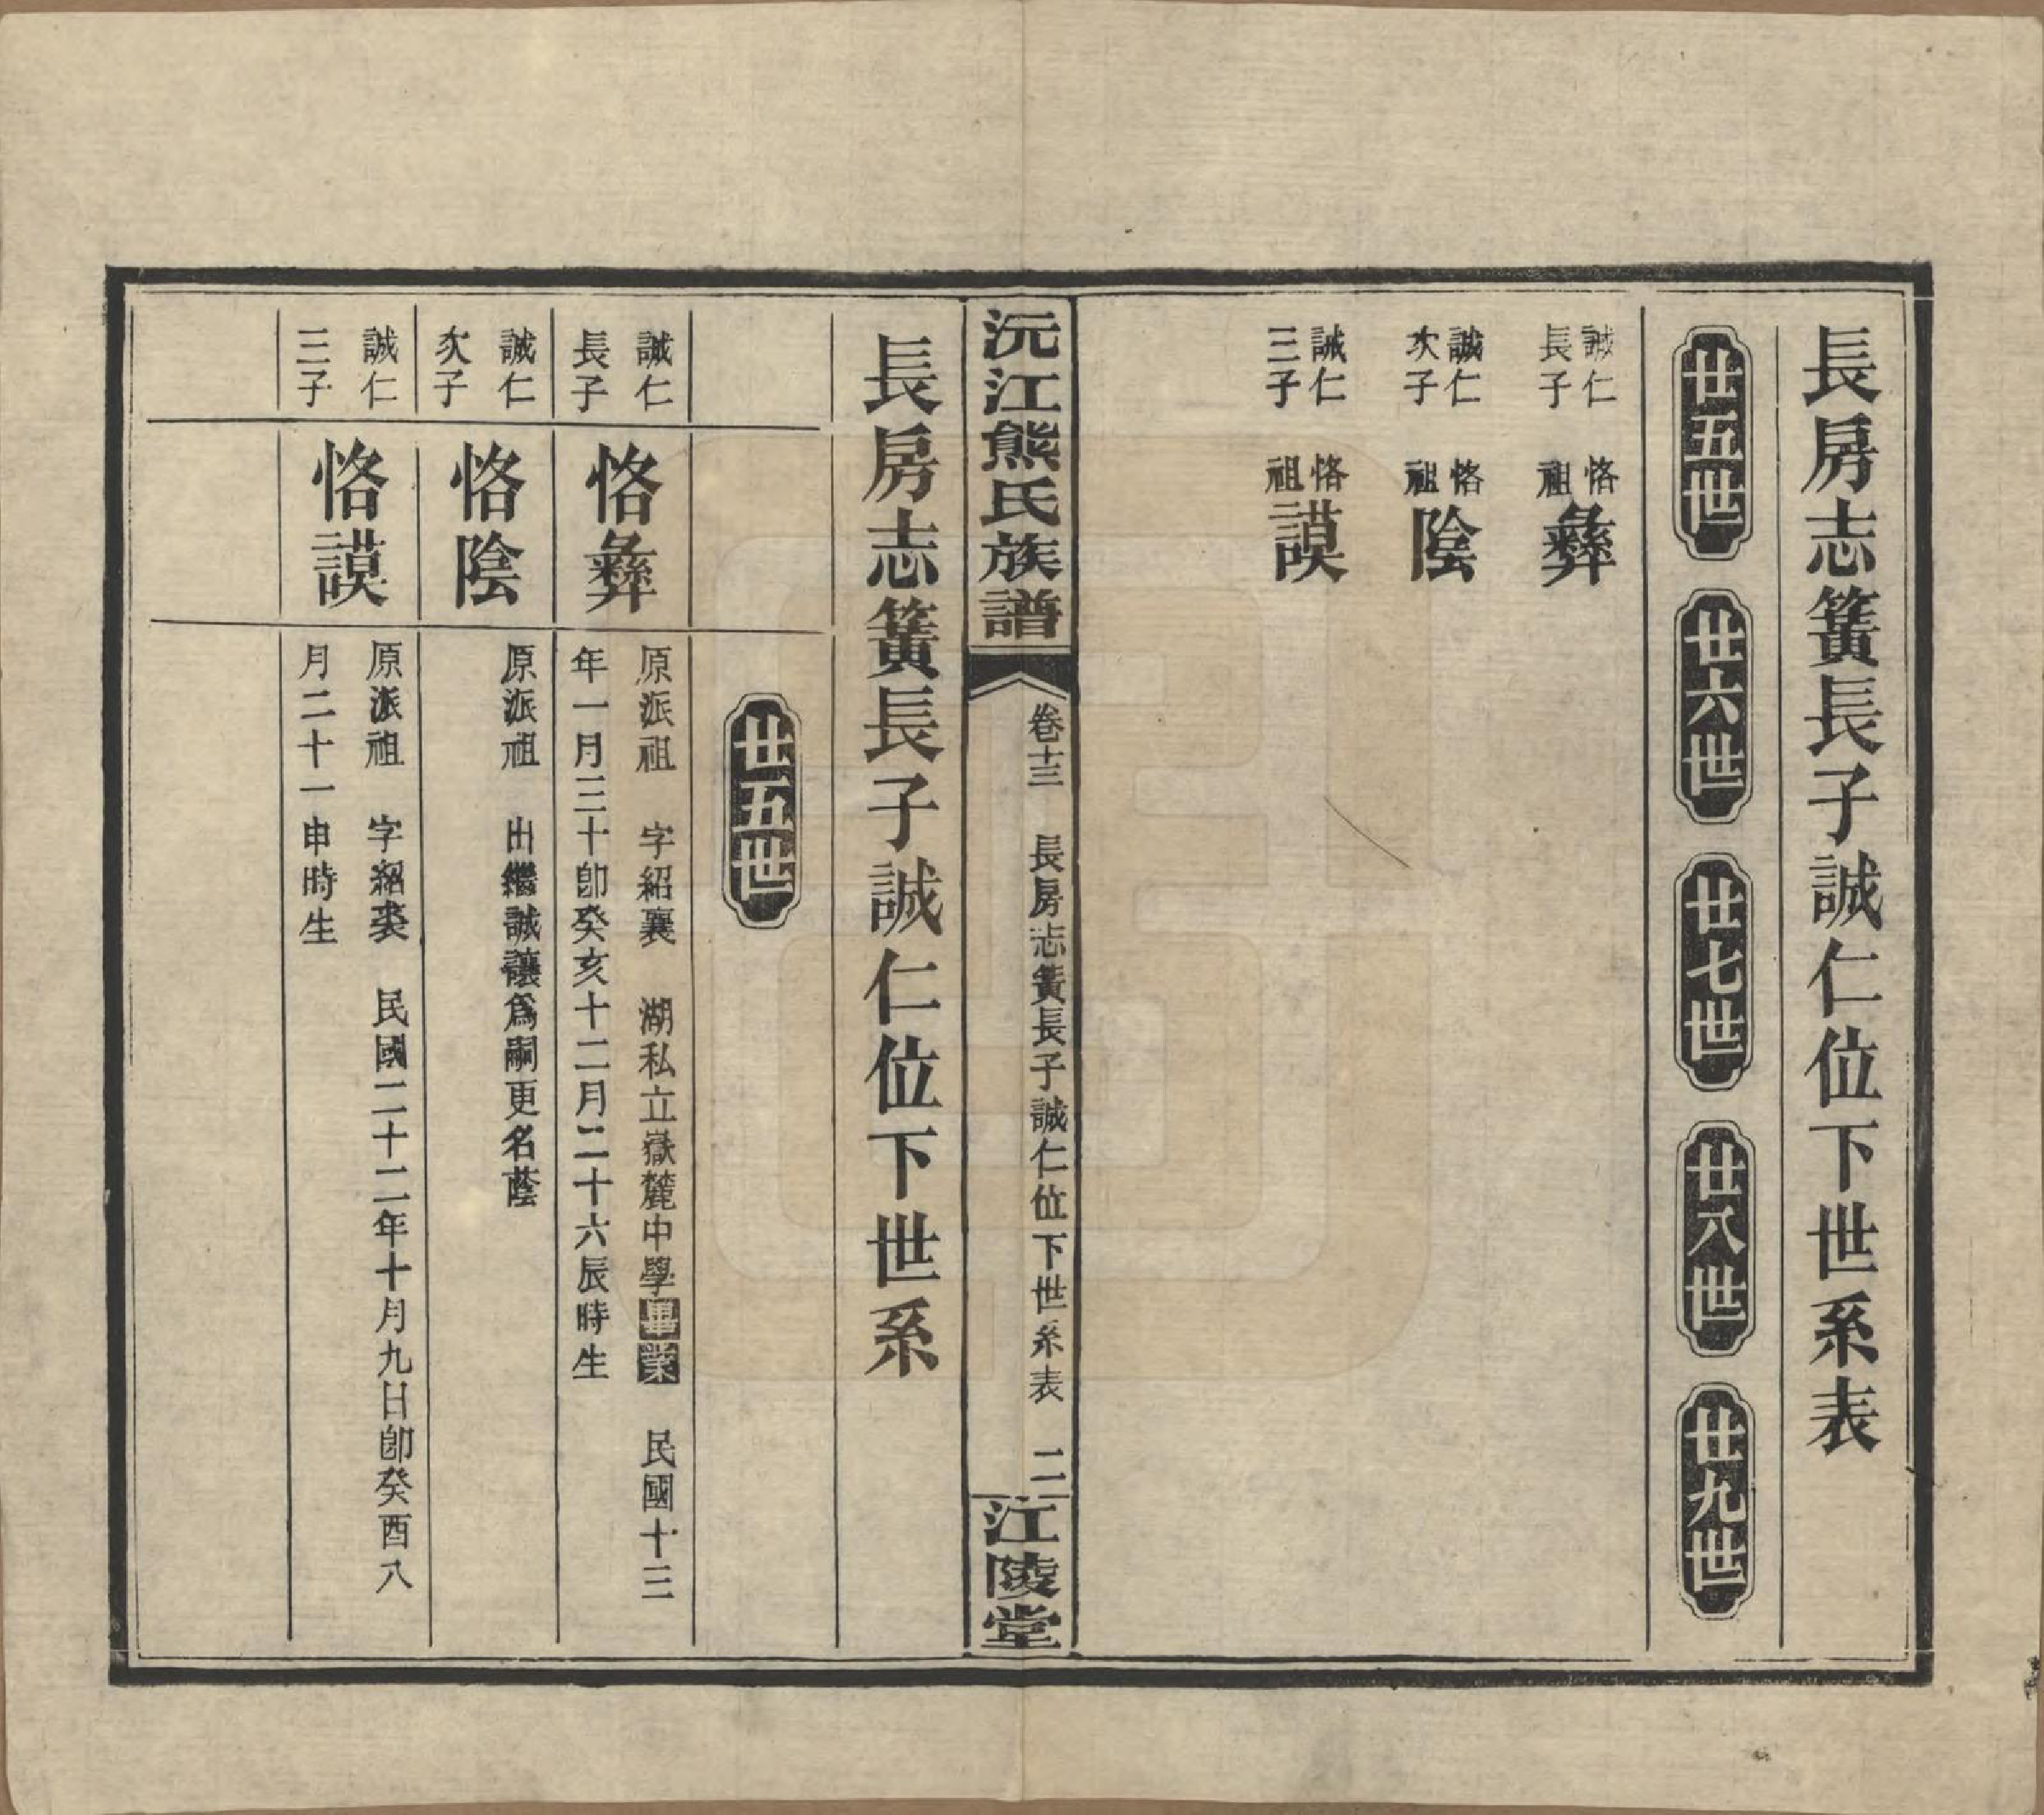 長房志簧長子誠仁位下世系表
廿五世
廿六世
廿七世
廿八世
廿九世
誠仁
長子
恪
祖
彝
誠仁
次子
恪
祖
陰
誠仁
三子
恪
祖
謨
沅江熊氏族譜
卷十三 長房志簧長子誠仁位下世系表 二
江陵堂
長房志簧長子誠仁位下世系
廿五世
誠仁
長子
恪彝
原派祖 字紹襄 湖私立嶽麓中學畢業 民國十三
年一月三十卽癸亥十二月二十六辰時生
誠仁
次子
恪陰
原派祖 出繼誠讓為嗣更名蔭
誠仁
三子
恪謨
原派祖 字紹裘 民國二十二年十月九日卽癸酉八
月二十一申時生